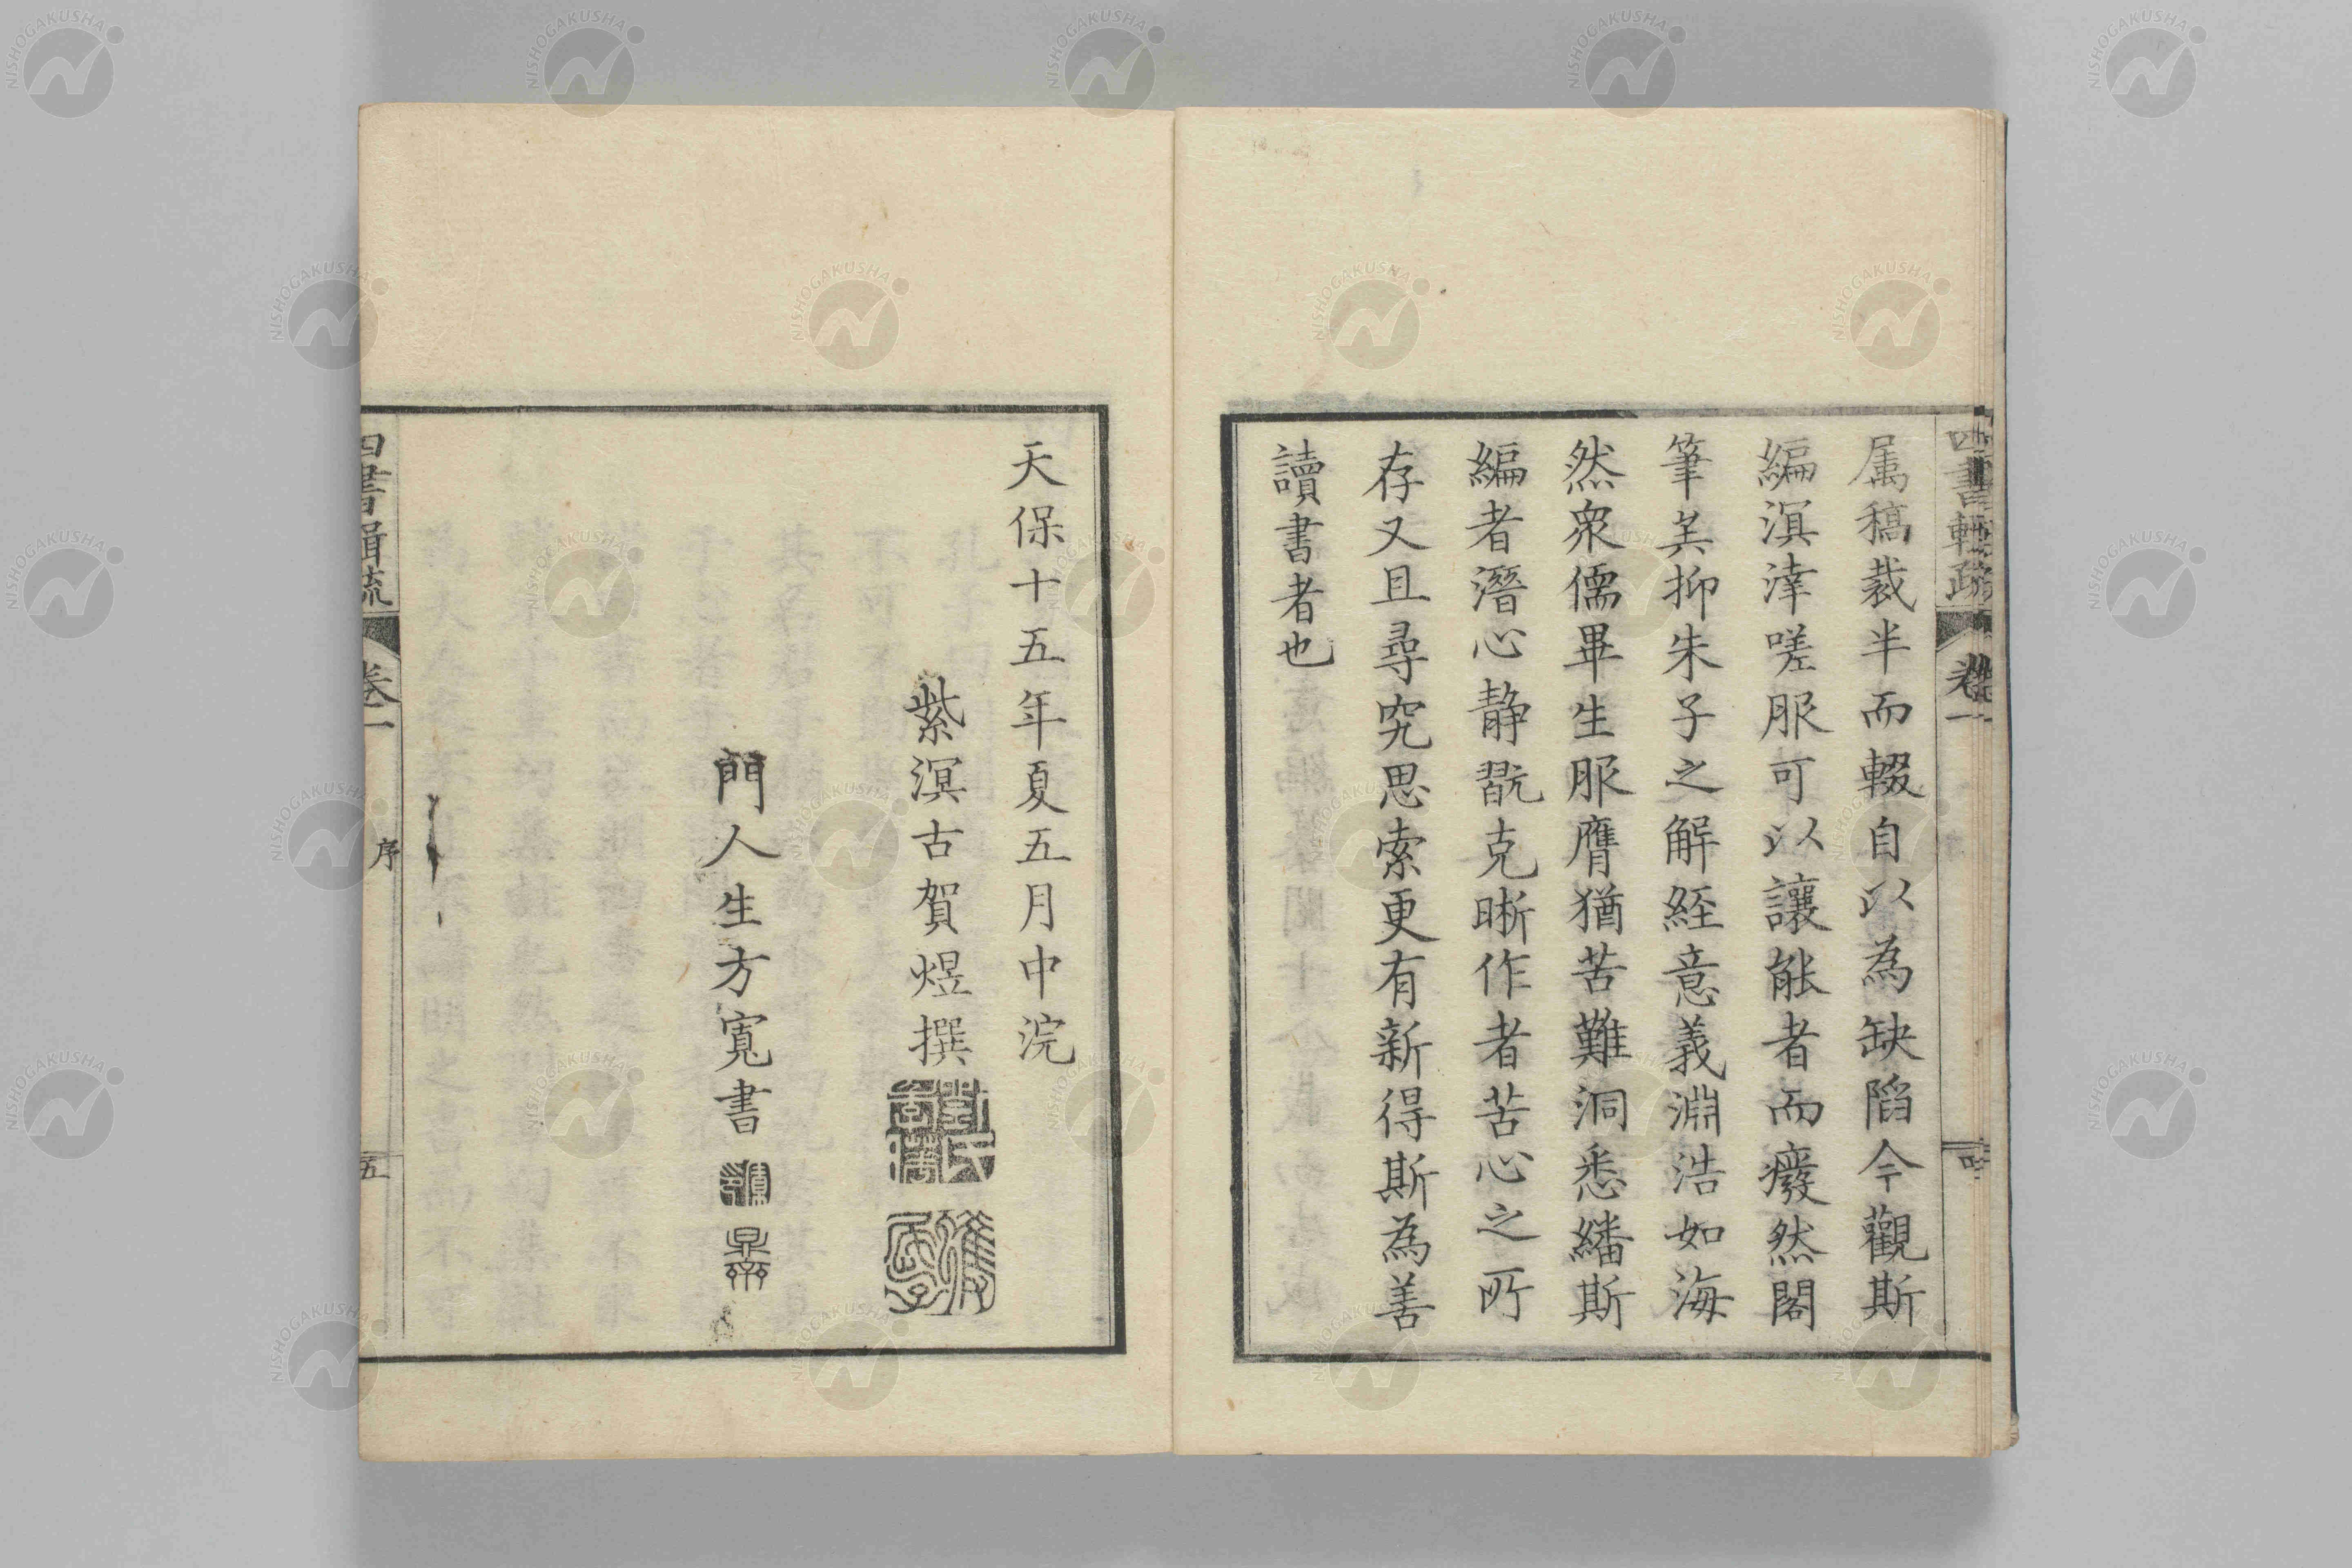 四書輯疏 卷一 四
属稿裁半而輟自以為缺陷今觀斯
編溟涬嗟服可以讓能者而癈然閣
筆矣抑朱子之解経意義淵浩如海
然衆儒畢生服膺猶苦難洞悉繙斯
編者潛心静翫克晰作者苦心之所
存又且尋究思索更有新得斯為善
讀書者也
天保十五年夏五月中浣
紫溟古賀煜撰
門人生方寬書
四書輯疏 卷一 序 五
NISHOGAKUSHA